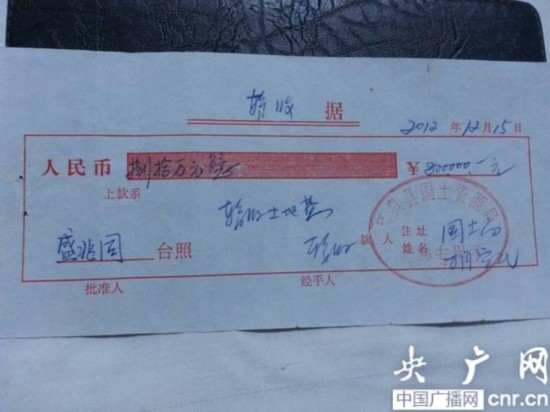 暂收 据
2012 年 12 月 15 日
人民币 捌拾万元整 ¥ 800000.-元
上款系
暂收土地款
盛兆国 台照 暂收 款人 住址 国土局
姓名
国土资源局
批准人 经手人
央广网
中国广播网 cnr.cn